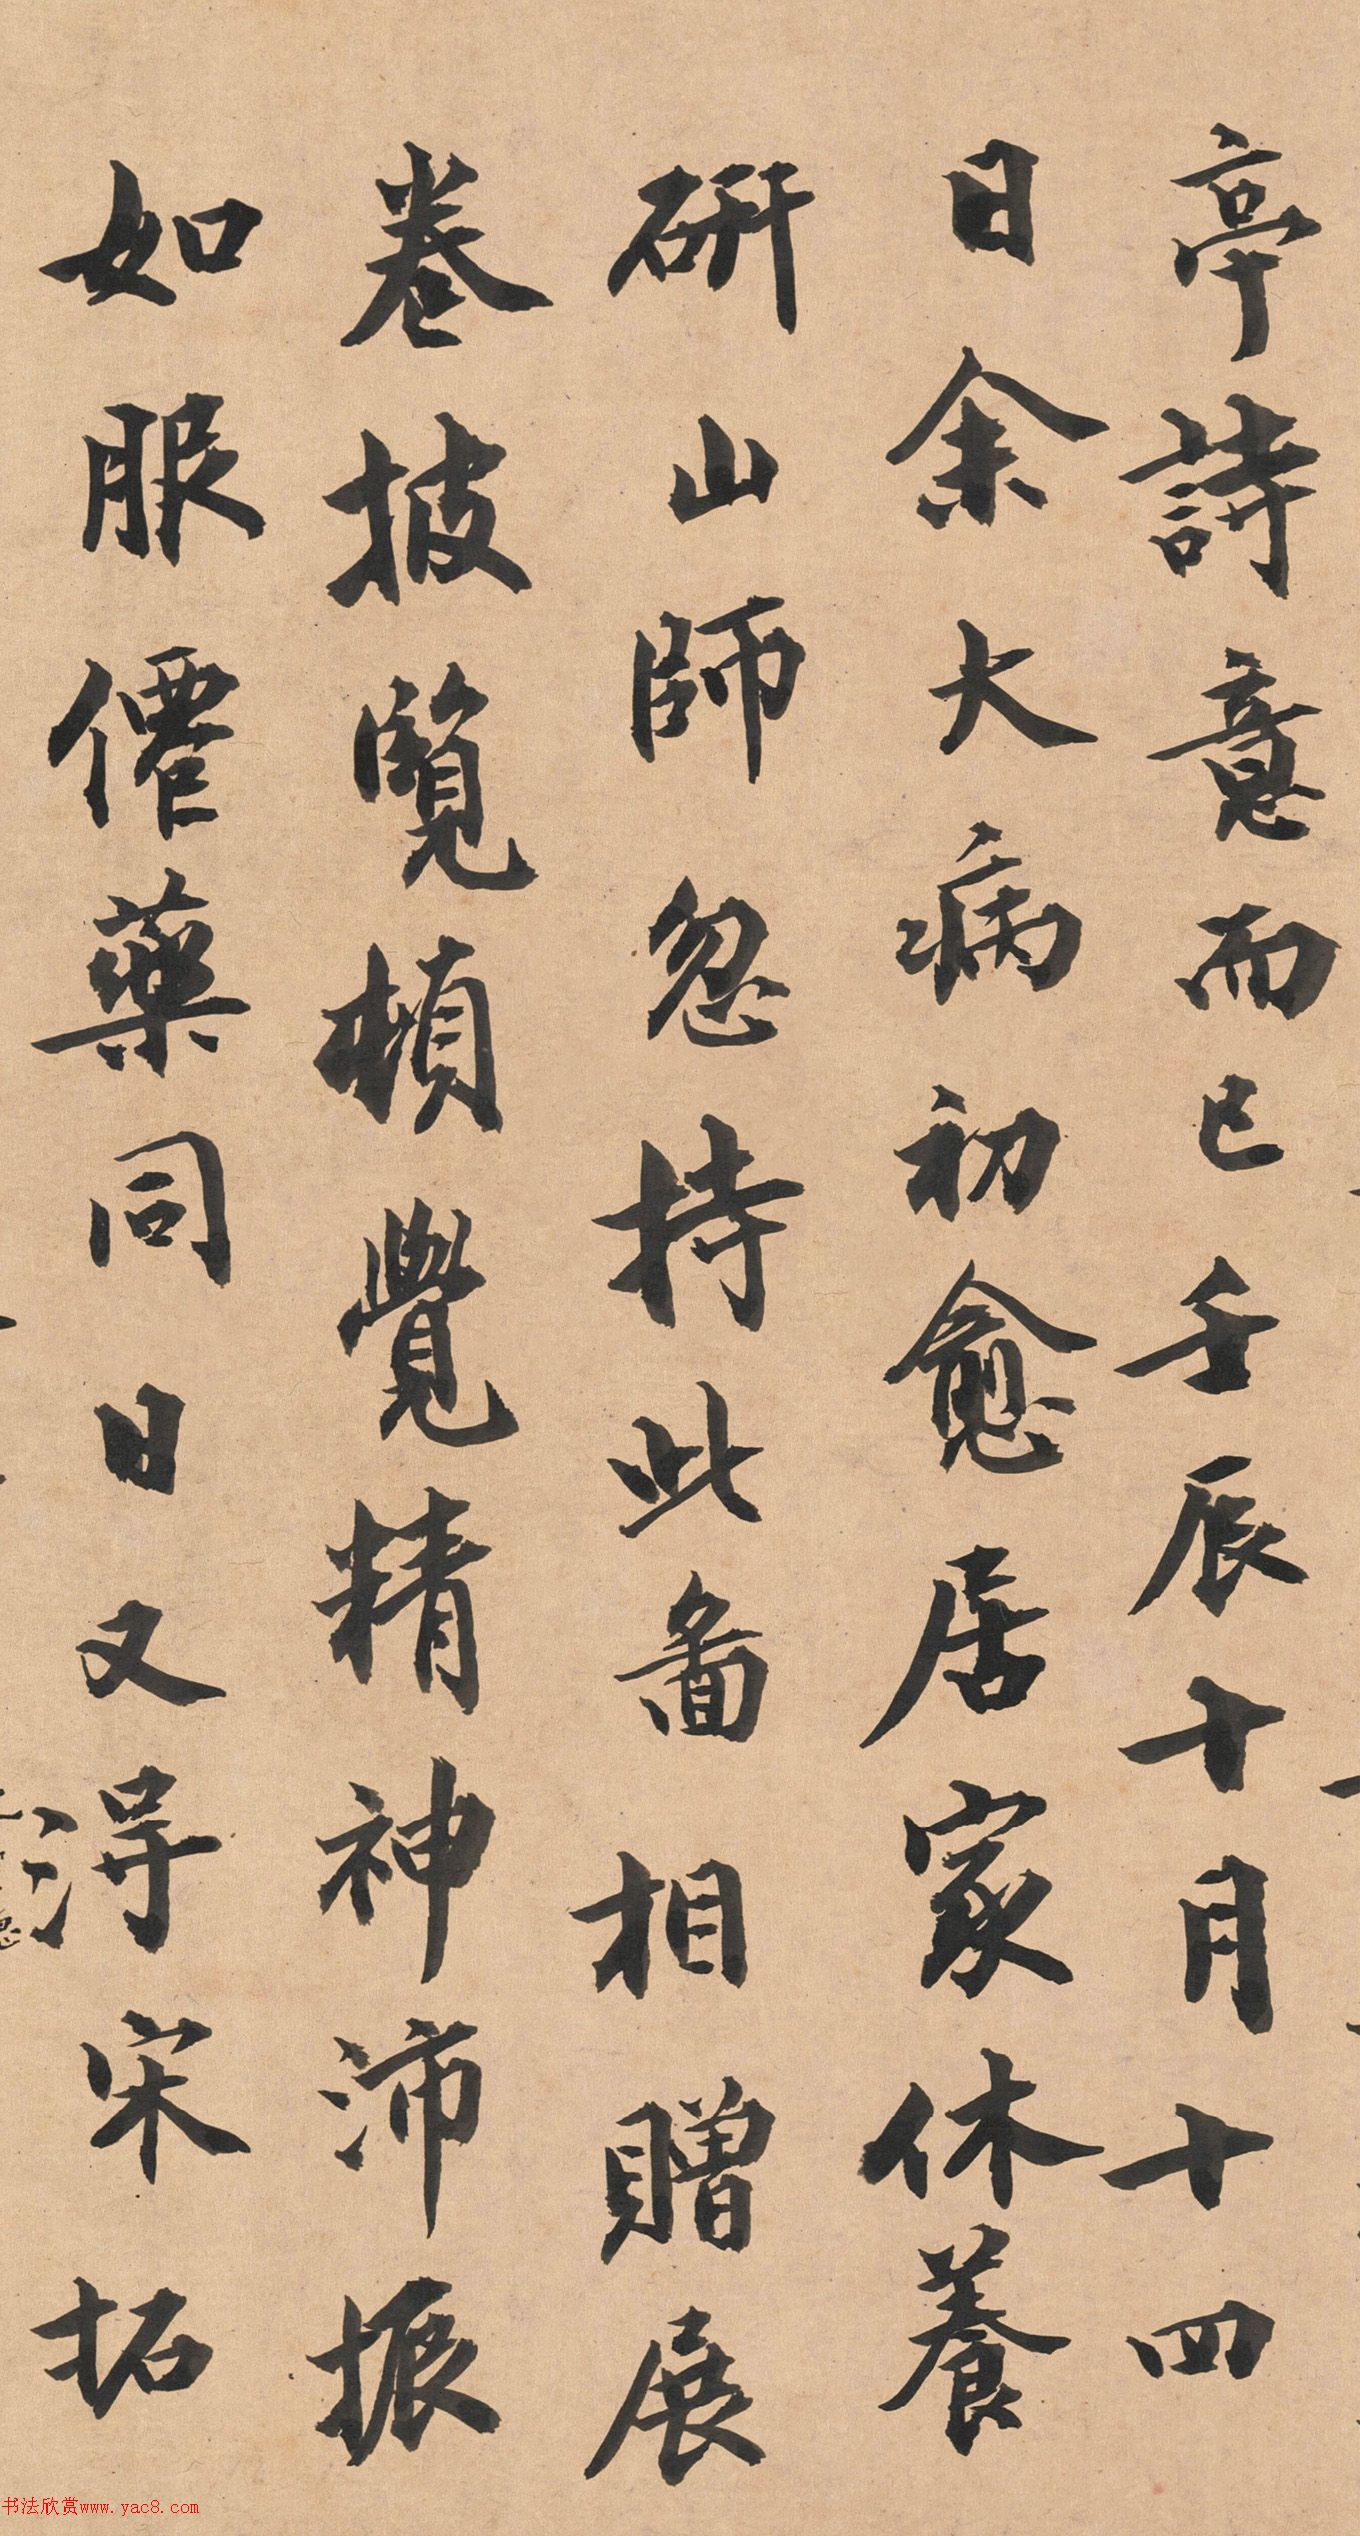 亭詩意而已壬辰十月十四
日余大病初愈居家休養
研山師忽持此啚相贈展
卷披覽頓覺精神沛振
如服僊藥同日又淂宋拓
书法欣赏www.yac8.com